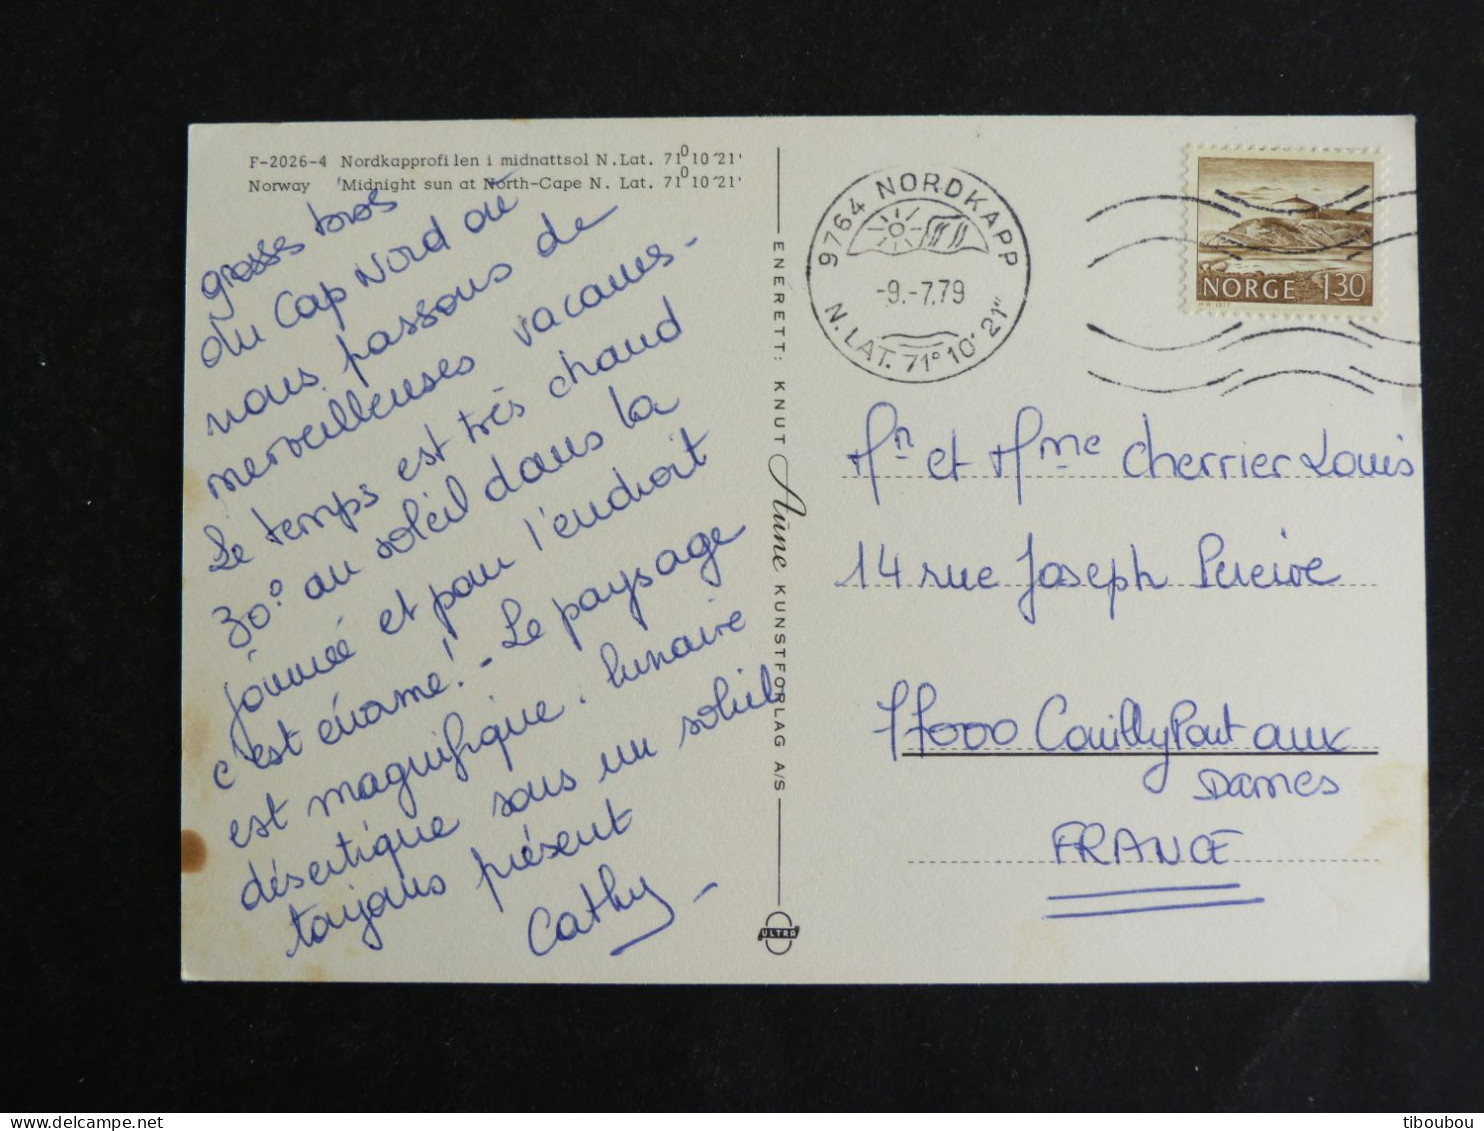 F-2026-4 Nordkapprofilen i midnattsol N.Lat. 71° 10´21'
Norway 'Midnight sun at North-Cape N. Lat. 71° 10´21'
grosses bises
du Cap Nord où
nous passons de
merveilleuses vacances -
Le temps est très chaud
30° au soleil dans la
journée et pour l'endroit
c'est énorme! - Le paysage
est magnifique : lunaire
désertique sous un soleil
toujours présent
Cathy -
ENERETT: KNUT Aune KUNSTFORLAG A/S
ULTRA
9764 NORDKAPP
-9.-7.79
N. LAT. 71° 10' 21"
NORGE 130
Mr et Mme Cherrier Louis
14 rue Joseph Pereire
77000 Couilly Pont aux
Dames
FRANCE
tiboubou